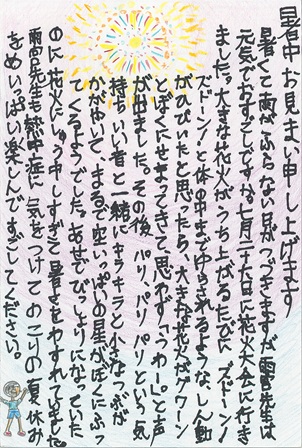 暑中お見まい申し上げます
暑くて雨がふらない日がつづきますが雨宮先生は
元気でおすごしですか。七月二十九日に花火大会に行き
ました。大きな花火がうち上がるたびに、ズドーン!
ズドーン!と体の中までゆらされるような、しん動
がひびいたと思ったら、大きな花火がグワーン
とぼくにせまってきて、思わず「うわー」と声
が出ました。その後、パリ、パリ、パリという気
持ちいい音と一緒にキラキラと小さなつぶが
かがやいて、まるで空いっぱいの星がぼくにふっ
てくるようでした。あせでびっしょりになっていた
のに、花火にしゅう中しすぎて暑さをわすれていました。
雨宮先生も熱中症に気をつけて、のこりの夏休み
をめいっぱい楽しんですごしてください。